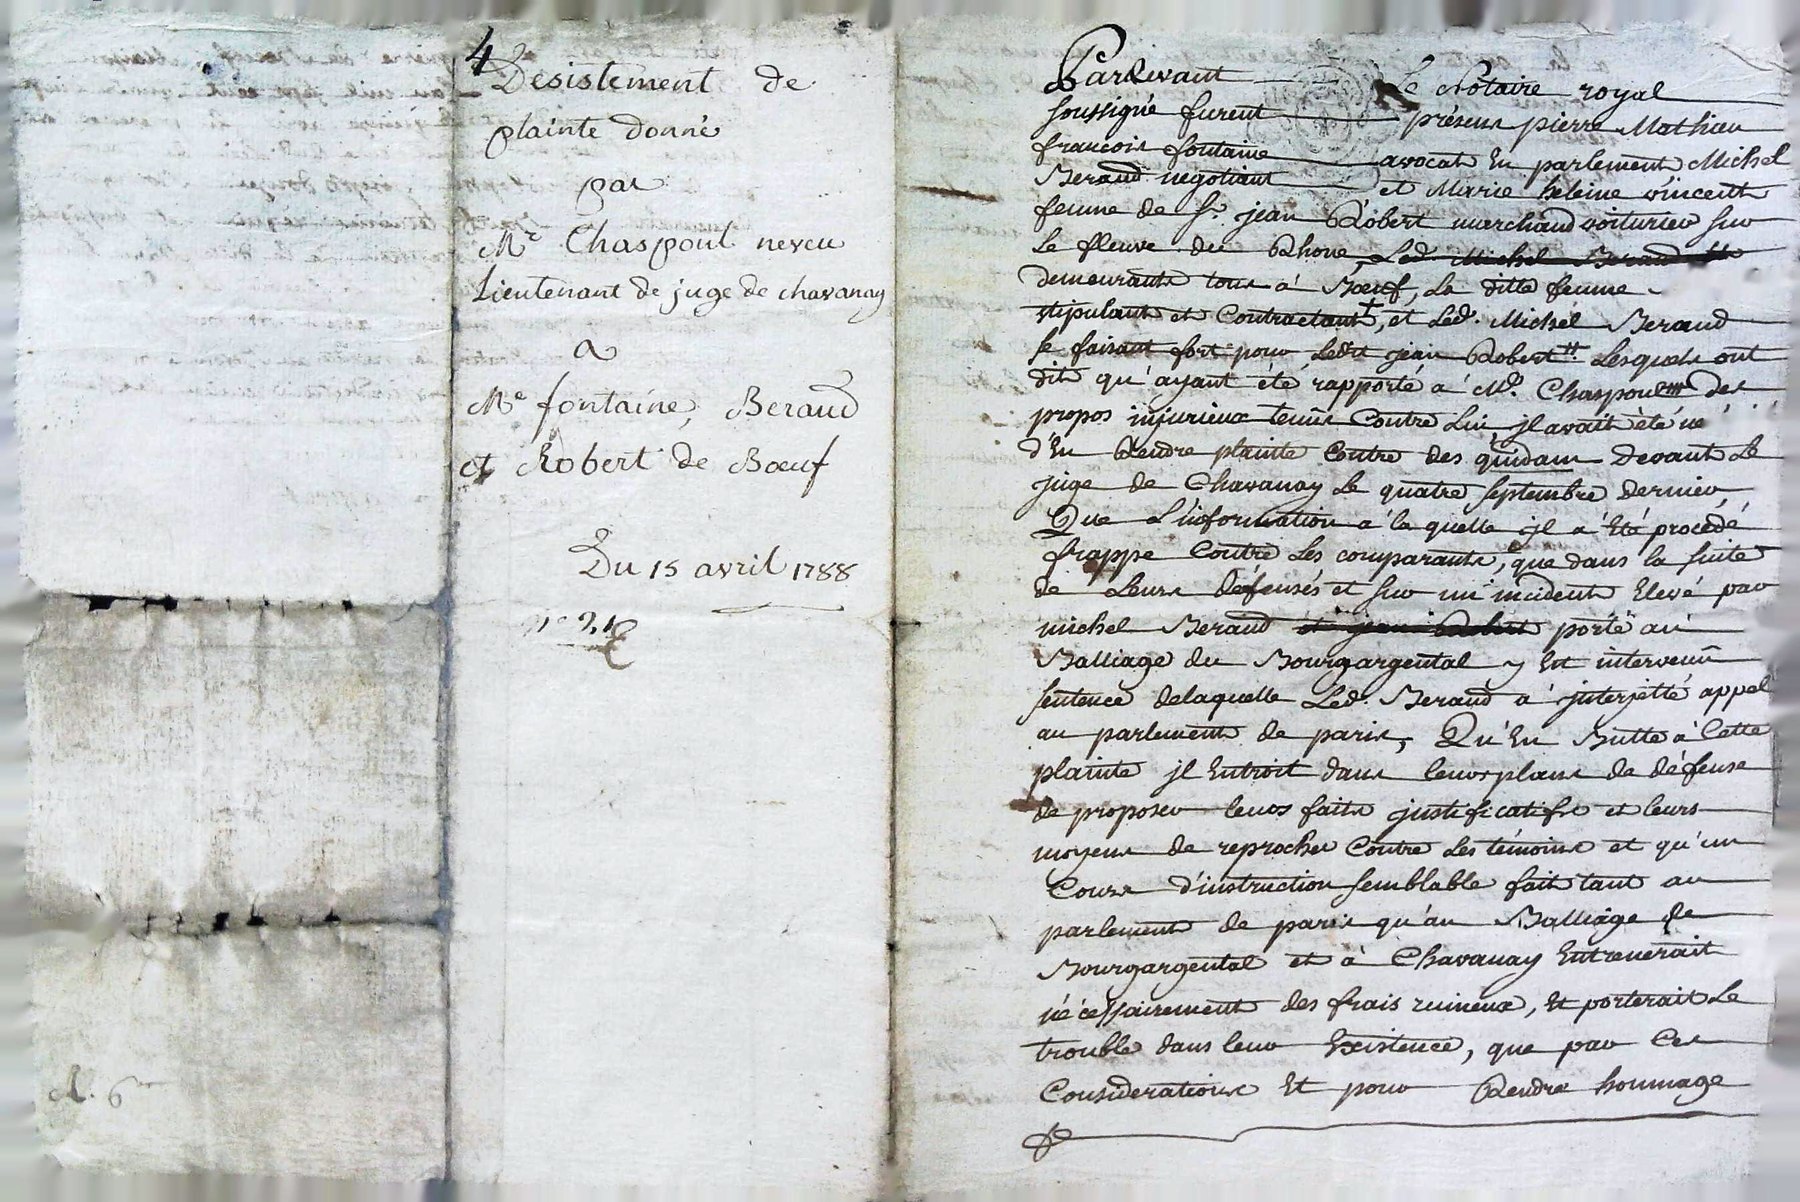 4
Desistement de
plainte donné
par
Mr Chaspoul neveu
Lieutenant de juge de chavanay
a
Me fontaine, Beraud
et Robert de Bœuf
Du 15 avril 1788
A. 6
Pardevant Le Notaire royal
soussigné furent présens pierre Mathieu
francois fontaine avocat En parlement Michel
Beraud négotiant et Marie heleine vincent
femme de Sr. jean Robert marchand voiturier sur
Le fleuve du Rhone, Led. Michel Beraud
demeurants tous a Bœuf, La ditte femme
stipulant et Contractant, et Led. Michel Beraud
se faisant fort pour Ledit jean Robert Lesquels ont
dit qu'ayant été rapporté a Me. Chaspoul des
propos injurieux tenus Contre Lui jl avait été
d'En Rendre plainte Contre des quidam Devant Le
juge de Chavanay Le quatre septembre dernier
Que L'information a la quelle jl a Eté procédé
frappe Contre Les comparants, que dans la suite
de Leurs défenses et sur un incident Elevé par
michel Beraud et jean Robert porté au
Balliage du Bourgargental y Est intervenu
sentence delaquelle Led. Beraud a jnterjetté appel
au parlement de paris, Qu'En Butte a Cette
plainte jl Entroit dans leurs plans de défense
de proposer leurs faits justificatifs et leurs
moyens de reproches Contre Les témoins et qu'un
Cours d'instruction semblable fait tant au
parlement de paris qu'au Balliage de
Bourgargental et a Chavanay Entrenerait
nécessairement des frais ruineux, Et porterait Le
trouble dans leur Existence, que par Ces
Considerations Et pour Rendre hommage